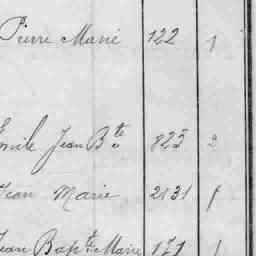 Pierre Marie 122 1
Emile Jean Bte 823 2
Jean Marie 2131 1
Jean Bapte Marie 171 1